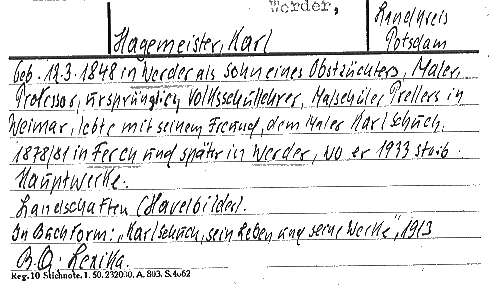 Werder,
Landkreis
Potsdam
Hagemeister, Karl
Geb. 12.3.1848 in Werder als Sohn eines Obstzüchters, Maler,
Professor, ursprünglich Volksschullehrer, Malschüler Prellers in
Weimar, lebte mit seinem Freund, dem Maler Karl Schuch,
1878/81 in Ferch und später in Werder, wo er 1933 starb.
Hauptwerke.
Landschaften (Havelbilder).
In Buchform: „Karl Schuch, sein Leben und seine Werke", 1913
B.Q: Lexika.
Reg. 10 Stichnote. 1. 50. 232000. A. 803. S. 4062